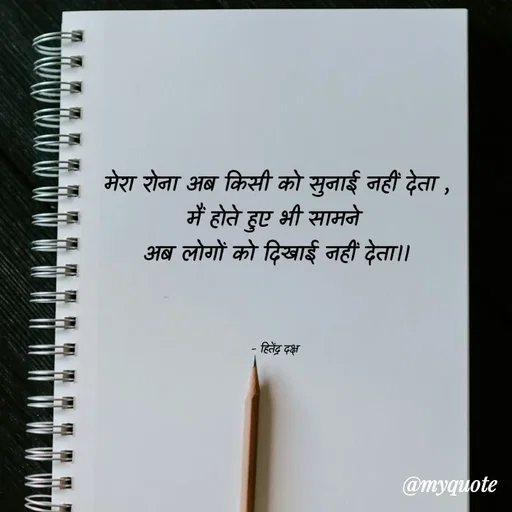 मेरा रोना अब किसी को सुनाई नहीं देता ,
मैं होते हुए भी सामने
अब लोगों को दिखाई नहीं देता।।
- हितेंद्र दक्ष
@myquote